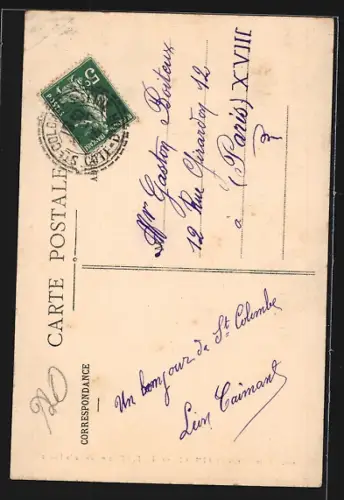 CARTE POSTALE
CORRESPONDANCE
Un bonjour de St Colombe
Léon
Mr Gaston Boiteux
12 Rue Girardon 12
à (Paris) XVIII
5